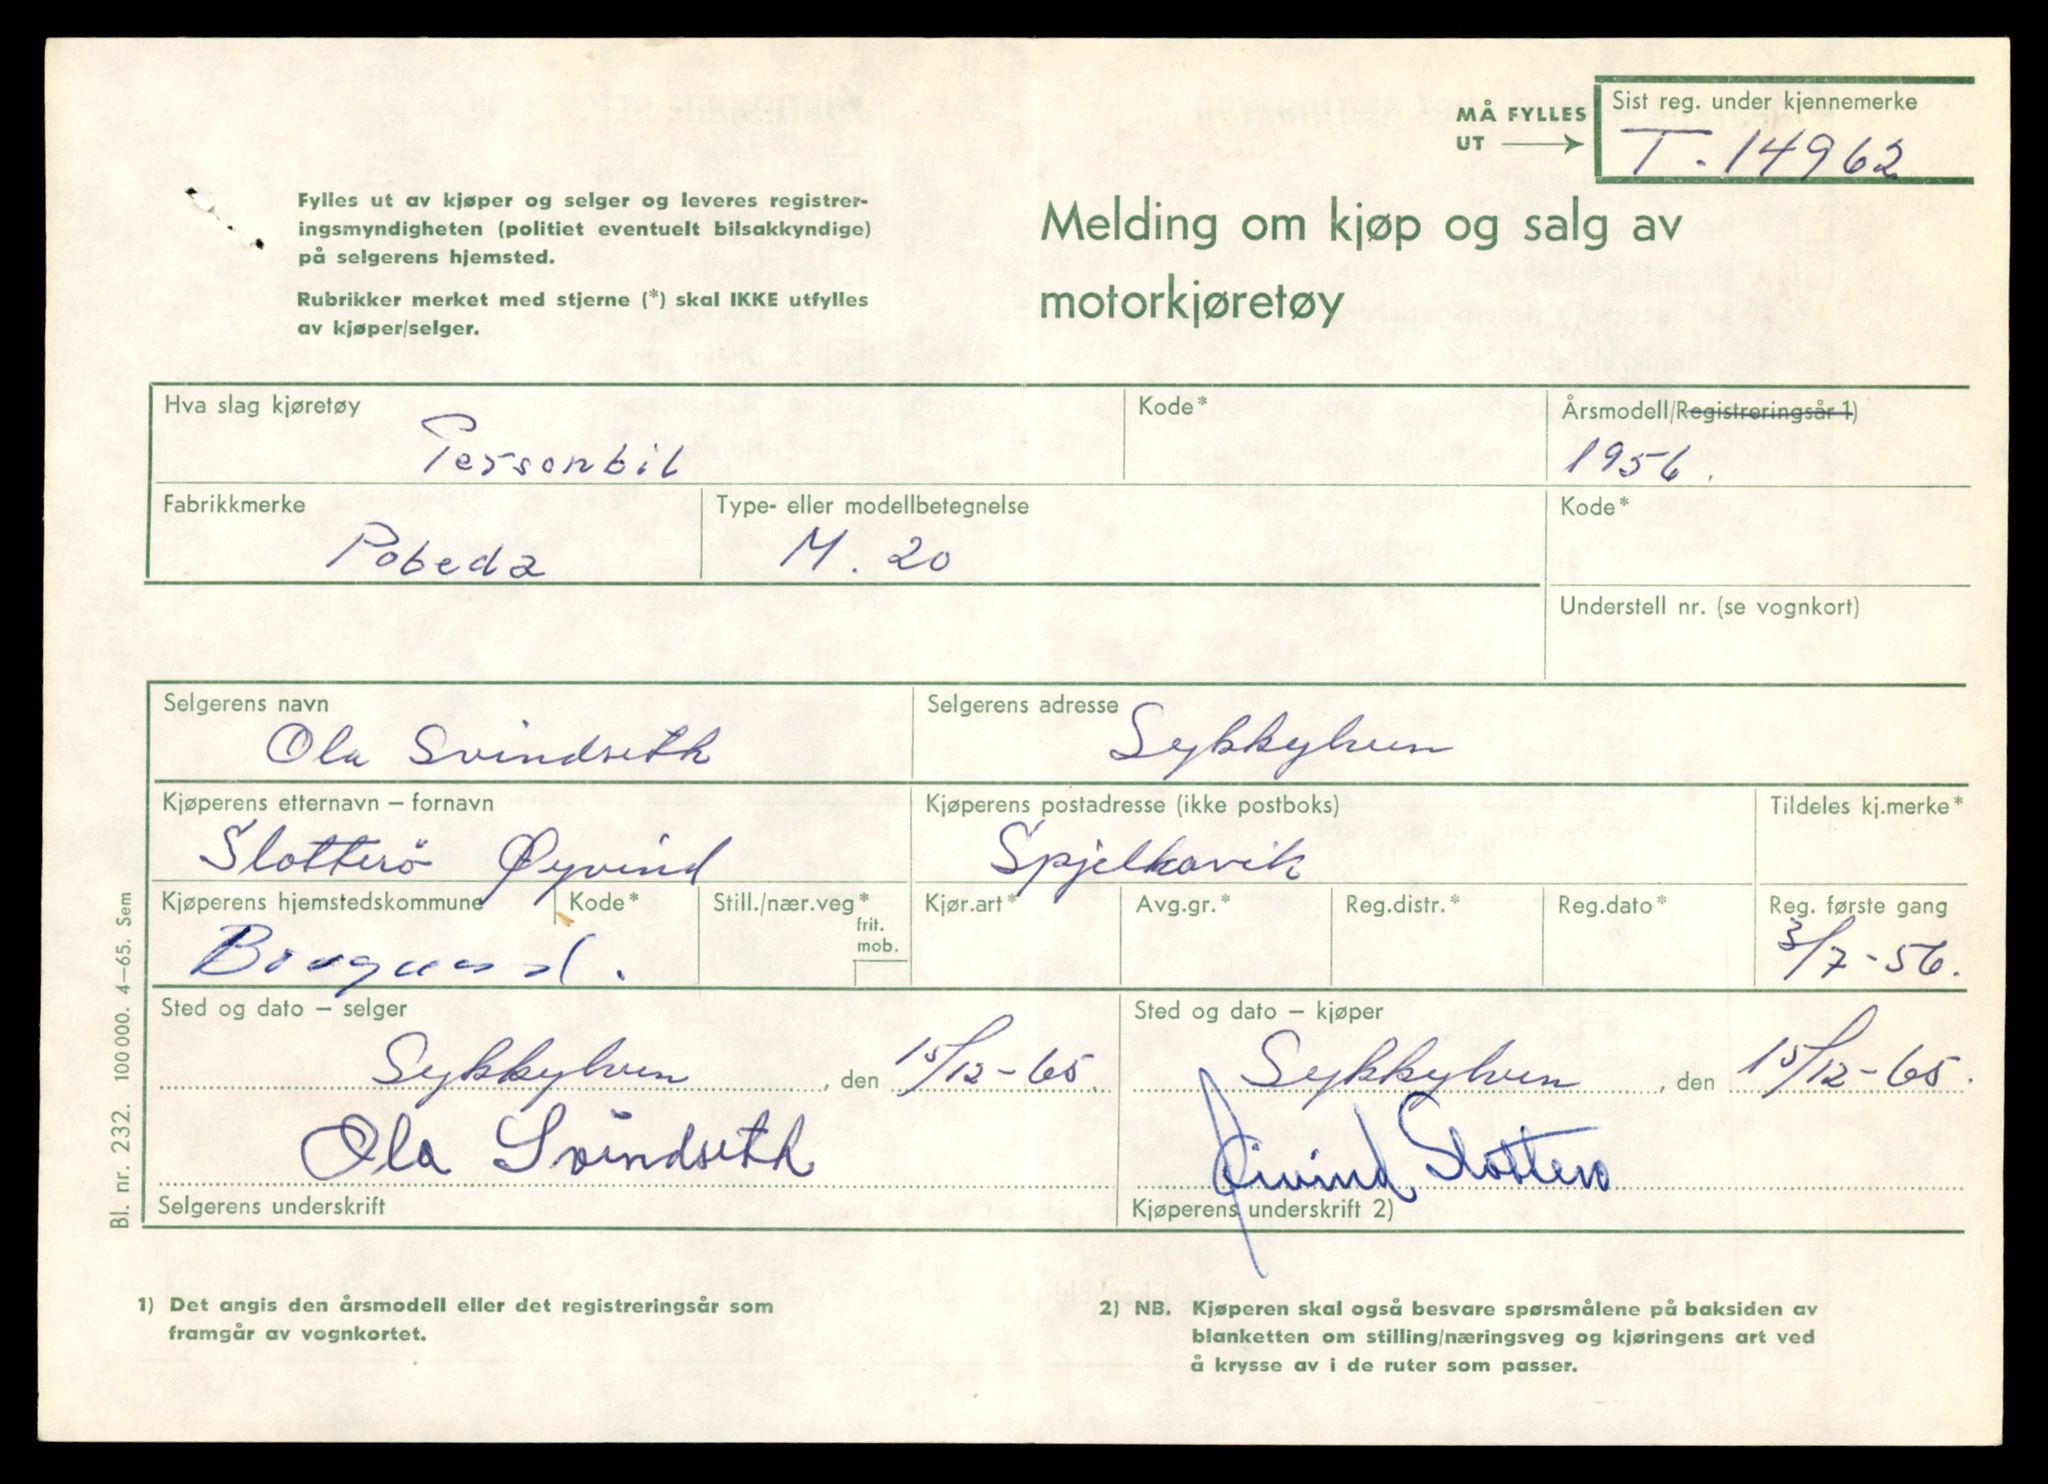 MÅ FYLLES
UT
Sist reg. under kjennemerke
T. 14962
Fylles ut av kjøper og selger og leveres registrer-
ingsmyndigheten (politiet eventuelt bilsakkyndige)
på selgerens hjemsted.
Rubrikker merket med stjerne (*) skal IKKE utfylles
av kjøper/selger.
Melding om kjøp og salg av
motorkjøretøy
Hva slag kjøretøy
Personbil
Kode*
Årsmodell/Registreringsår 1)
1956.
Fabrikkmerke
Pobeda
Type- eller modellbetegnelse
M. 20
Kode*
Understell nr. (se vognkort)
Selgerens navn
Ola Svindseth
Selgerens adresse
Sykkylven
Kjøperens etternavn – fornavn
Slotterö Øyvind
Kjøperens postadresse (ikke postboks)
Spjelkavik
Tildeles kj.merke*
Kjøperens hjemstedskommune
Borgund.
Kode*
Still./nær.veg*
frit.
mob.
Kjør.art*
Avg.gr.*
Reg.distr.*
Reg.dato*
Reg. første gang
3/7-56.
Sted og dato – selger
Sykkylven, den 15/12-65.
Ola Svindseth
Selgerens underskrift
Sted og dato – kjøper
Sykkylven, den 15/12-65.
Øivind Slotterø
Kjøperens underskrift 2)
Bl. nr. 232. 100 000. 4–65. Sem
1) Det angis den årsmodell eller det registreringsår som
framgår av vognkortet.
2) NB. Kjøperen skal også besvare spørsmålene på baksiden av
blanketten om stilling/næringsveg og kjøringens art ved
å krysse av i de ruter som passer.